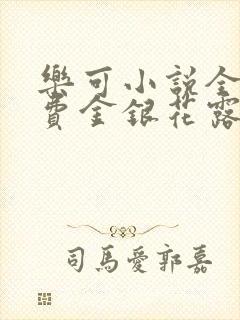 樂可小説全
費金銀花露
司馬愛郭嘉